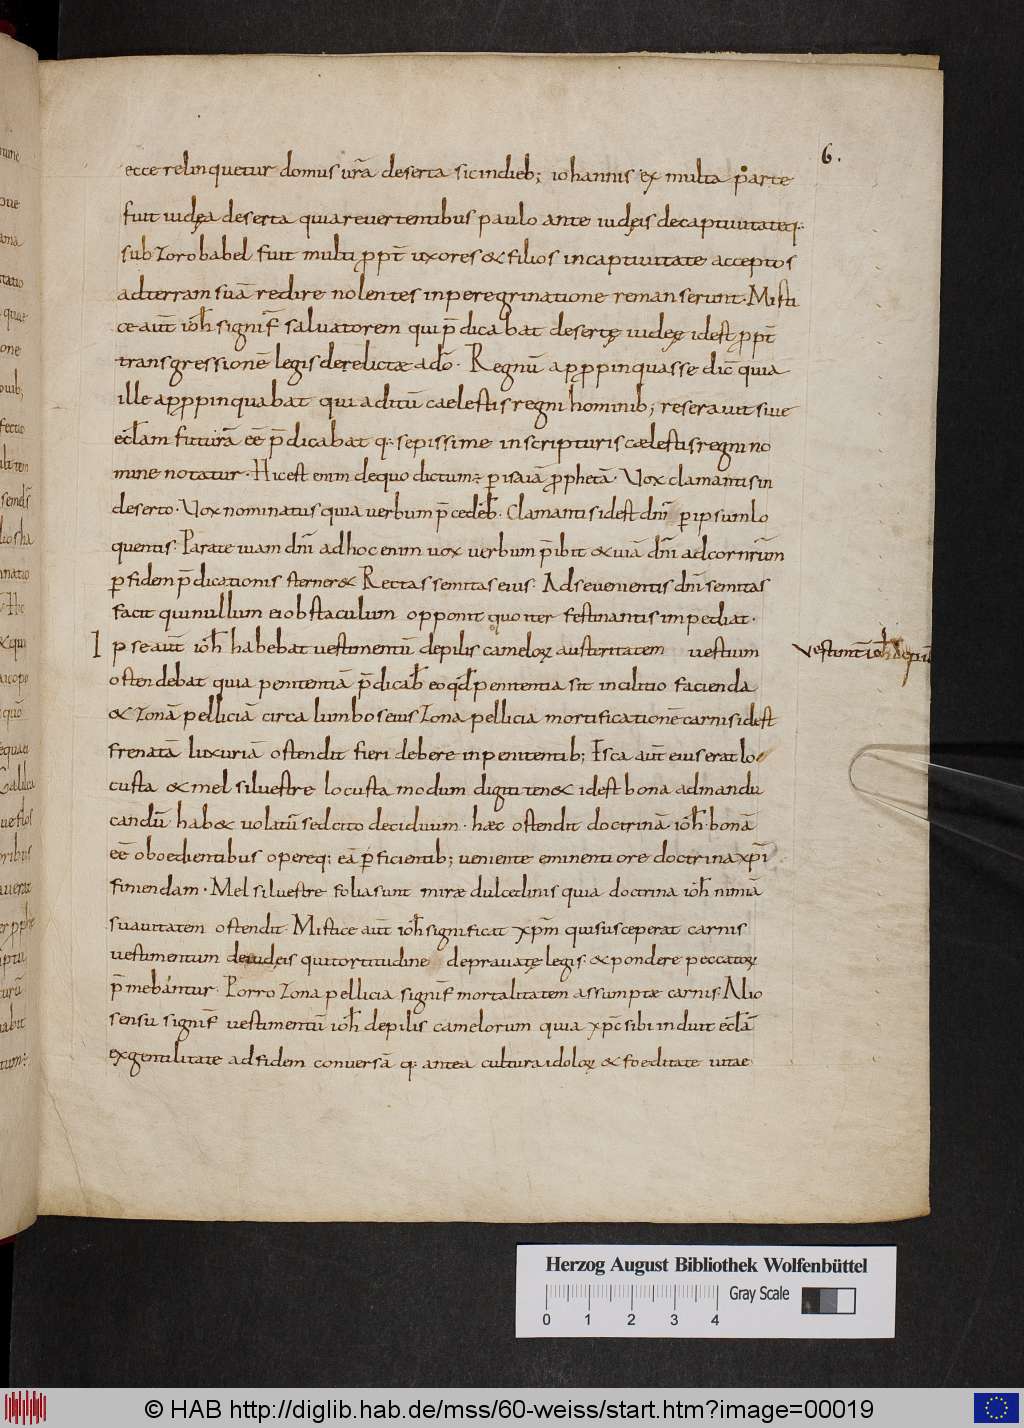 6.
ecce relinquetur domus ur̄a deserta sic indieb; iohannis ex multa parte
fuit iudęa deserta quia reuertentibus paulo ante iudęis decaptiuitate q:
sub zorobabel fuit multi ꝓpt̄ uxores & filios incaptiuitate acceptos
adterram suā redire nolentes inperegrinatione remanserunt. Misti
ce aut̄ ioh̄ signif̄ saluatorem qui p̄dicabat desertę iudeę idest ꝓpt̄
transgressionē legis derelictae ado̅. Regnū apꝓpinquasse dic̄ quia
ille apꝓpinquabat qui aditū caelestis regni hominib; reserauit siue
ec̄lam futurā eē p̄dicabat q: sepissime inscripturis cælestis regni no
mine notatur. Hic est enim dequo dictum: ꝑ isaiā ꝓphetā. Vox clamantis in
deserto. Vox nominatus quia uerbum p̄cedeb̄. Clamantis idest dn̄i ꝑ ipsum lo
quentis. Parate uiam dn̄i ad hoc enim uox uerbum p̄ibit & uiā dn̄i adcor nr̄um
ꝑ fidem p̄dicationis sterner& Rectas semitas eius. Adseuenientis dn̄i semitas
facit qui nullum ei obstaculum opponit quo iter festinantis impediat.
Ipse aut̄ ioh̄ habebat uestimentū depilis cameloꝝ austeritatem uestium
ostendebat quia penitentiā p̄dicab̄ eo qđ penitentia sit in cilitio facienda
& zonā pelliciā circa lumbos eius zona pellicia mortificationē carnis idest
frenatā luxuriā ostendit fieri debere inpenitentib; Esca aut̄ eius erat lo
custa & mel siluestre locusta modum digiti ten& idest bona admandu
candū hab& uolatū sed cito deciduum. haec ostendit doctrinā ioh̄ bonā
eē oboedientibus opereq: eā ꝑficientib; ueniente eminentiore doctrina xp̄i
finiendam. Mel siluestre folia sunt mirae dulcedinis quia doctrina ioh̄ nimiā
suauitatem ostendit. Mistice aut̄ ioh̄ significat xp̄m qui susceperat carnis
uestimentum deiudęis qui tortitudine deprauatę legis. & pondere peccatoꝝ
p̄mebantur. Porro zona pellicia signif̄ mortalitatem assumptae carnis. Alio
sensu signif̄ uestimentū ioh̄ depilis camelorum quia xp̄c sibi induit ec̄lā
exgentilitate adfidem conuersā q: antea cultura idoloꝝ & foeditate uitae
Herzog August Bibliothek Wolfenbüttel
0 1 2 3 4
Gray Scale
© HAB http://diglib.hab.de/mss/60-weiss/start.htm?image=00019